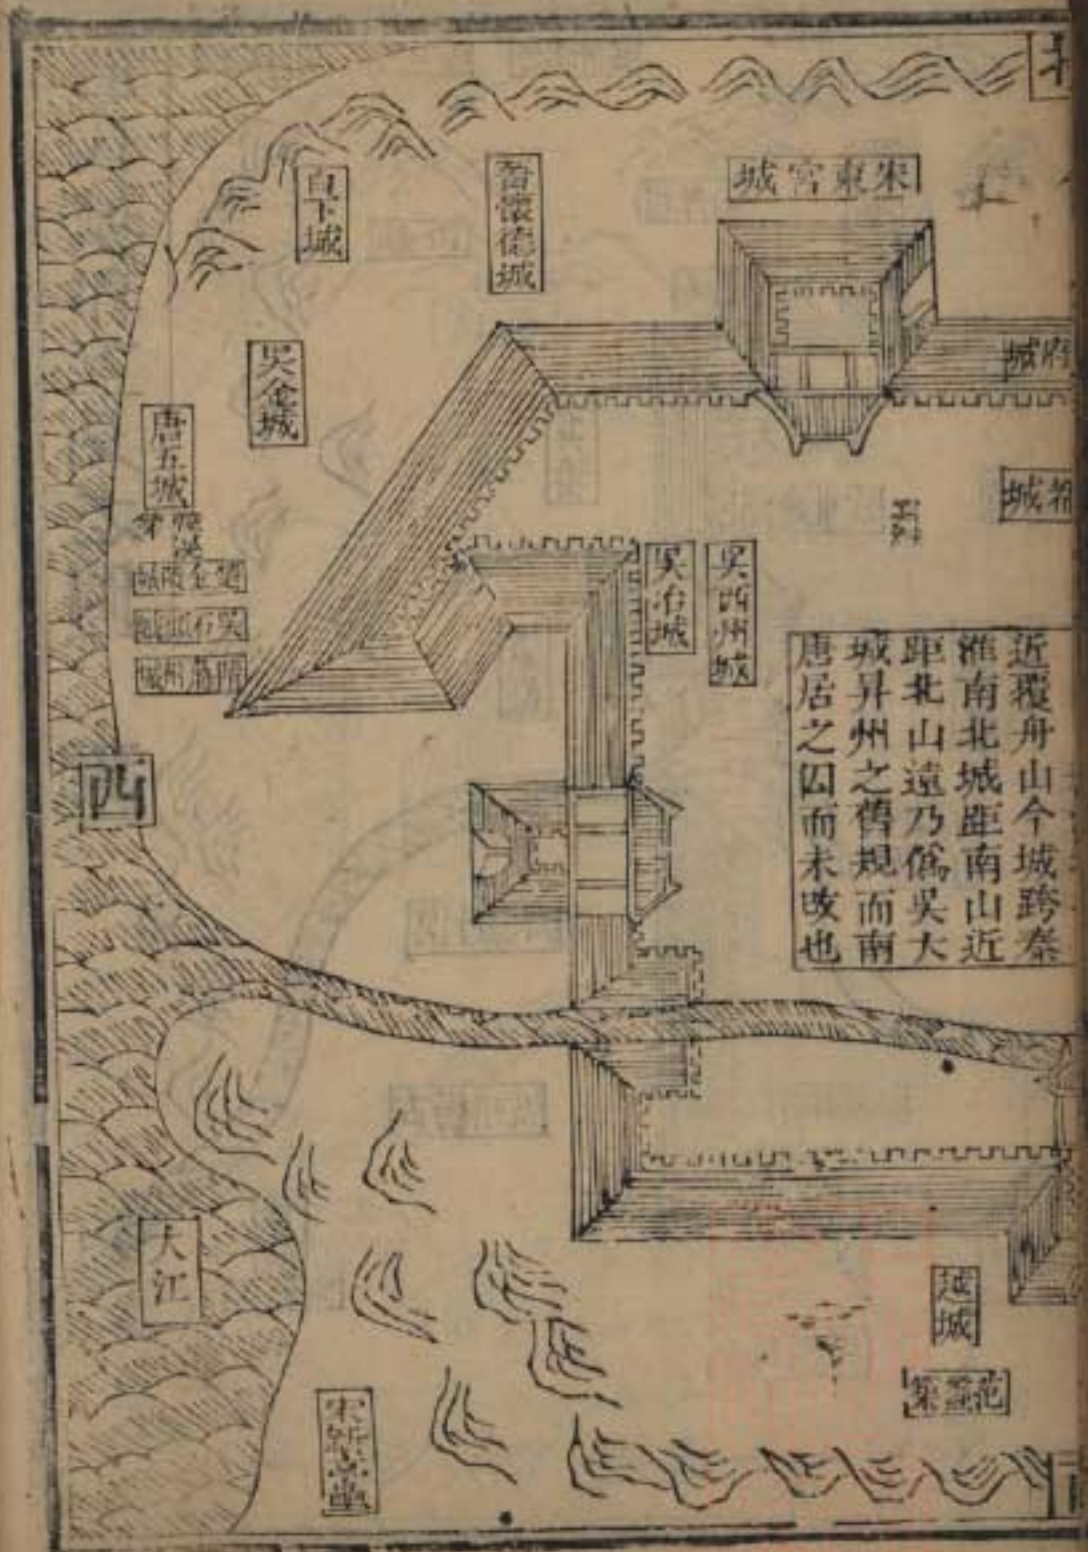 宋東宮城
晉懷德城
白下城
吳金城
唐五城
韓滉築
楚金陵城
吳石頭城
隋蔣州城
吳西州城
吳冶城
府城
城
近覆舟山今城跨秦
淮南北城距南山近
距北山遠乃僞吳大
城昇州之舊規而南
唐居之因而未改也
西
大江
越城
范蠡築
宋新亭壘